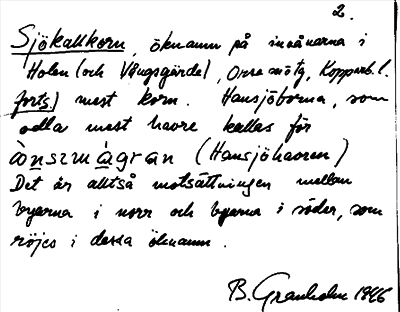 2.
Sjökallkorn, öknamn på invånarna i
Holen (och Vångsgärde), Orsa , Kopparb. l.
forts.) mest korn. Hansjöborna, som
odla mest havre kallas för
(Hansjöhavren)
Det är alltså motsättningen mellan
byarna i norr och byarna i söder, som
röjes i dessa öknamn.
B. Granholm 1946